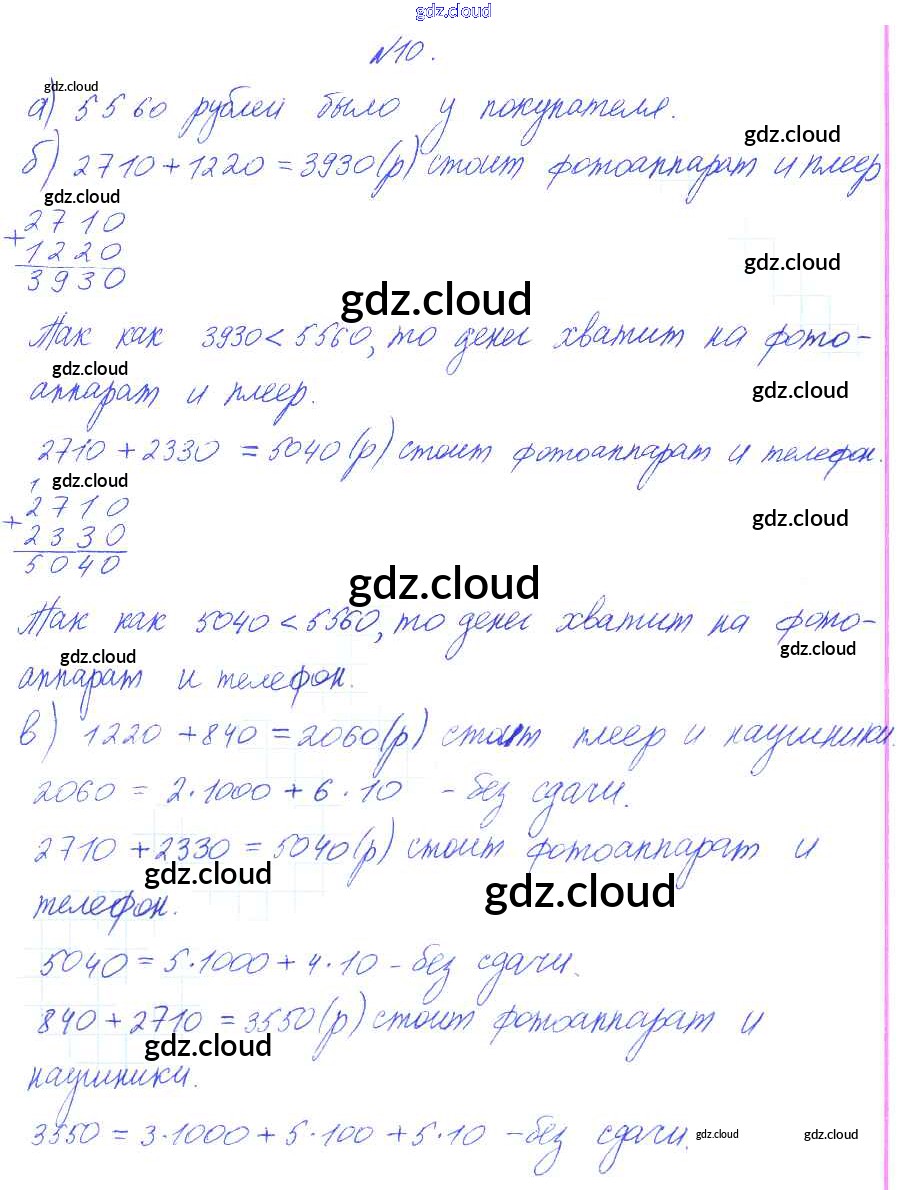 gdz.cloud
№10.
gdz.cloud
а) 5560 рублей было у покупателя.
gdz.cloud
б) 2710+1220=3930(р) стоит фотоаппарат и плеер
gdz.cloud
2710
+
1220
3930
gdz.cloud
gdz.cloud
Так как 3930<5560, то денег хватит на фото-
gdz.cloud
gdz.cloud
аппарат и плеер.
2710+2330=5040(р) стоит фотоаппарат и телефон.
1 gdz.cloud
2710
+
2330
5040
gdz.cloud
gdz.cloud
Так как 5040<5560, то денег хватит на фото-
gdz.cloud
gdz.cloud
аппарат и телефон.
в) 1220+840=2060(р) стоит плеер и наушники.
2060=2·1000+6·10 -без сдачи.
2710+2330=5040(р) стоит фотоаппарат и
gdz.cloud
gdz.cloud
телефон.
5040=5·1000+4·10-без сдачи.
840+2710=3550(р) стоит фотоаппарат и
gdz.cloud
gdz.cloud
наушники.
3550=3·1000+5·100+5·10 -без сдачи.
gdz.cloud
gdz.cloud